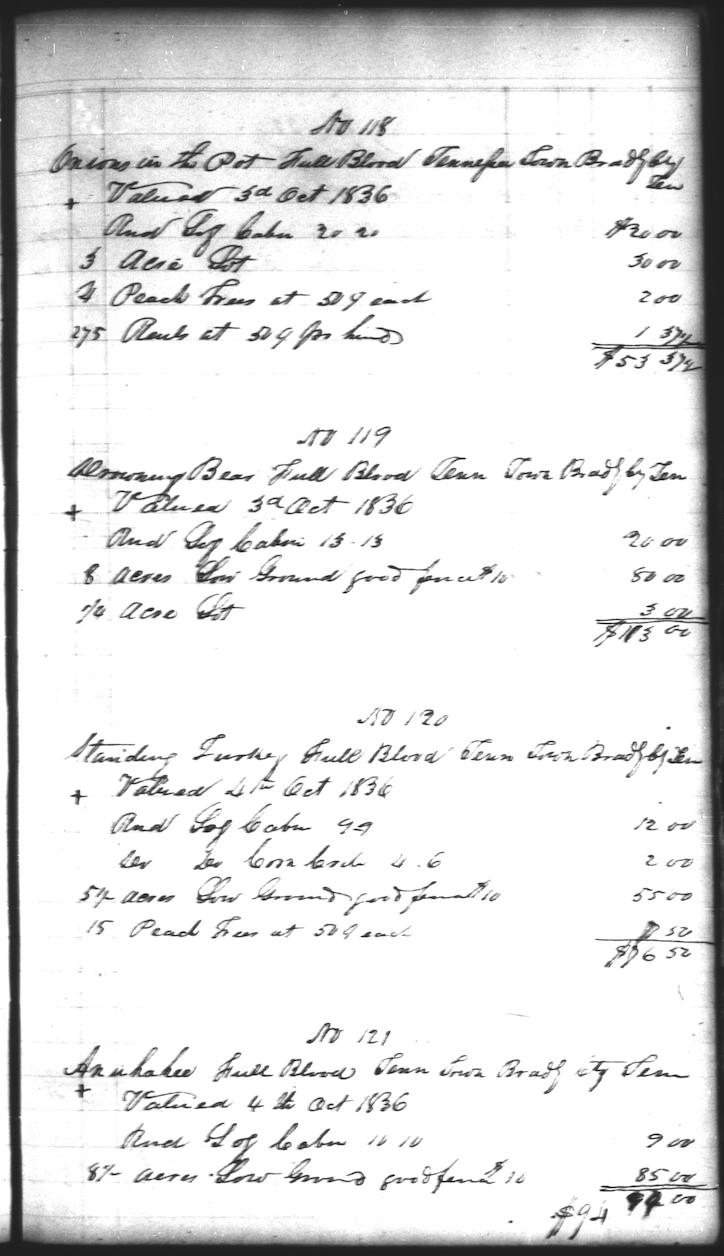 No 118
Onions in the Pot Full Blood Tennessee Town Bradly cty
Ten
+ Valued 3d Oct 1836
Rnd Log Cabn 20 20 $20 00
3 Acre Lot 30 00
4 Peach Trees at 50 ¢ each 2 00
275 Rails at 50 ¢ pr hund 1 37½
$53 37½
No 119
Drowning Bear Full Blood Tenn Town Bradly Ten
+ Valued 3d Oct 1836
Rnd Log Cabin 13-13 20 00
8 acres Low Ground good fence $10 80 00
Acre Lot 3 00
$113 00
No 120
Standing Turkey Full Blood Tenn Town Bradly Ten
+ Valued 4th Oct 1836
Rnd Log Cabn 9 9 12 00
Do Do Corn Crib 4.6 2 00
5½ acres Low Ground good fence $10 55 00
15 Peach Trees at 50 ¢ each 7 50
$76 50
No 121
Full Blood Tenn Town Brad cty Tenn
+ Valued 4th Oct 1836
Rnd Log Cabn 10 10 9 00
8½ acres Low Ground good fence $10 85 00
$94 94 00